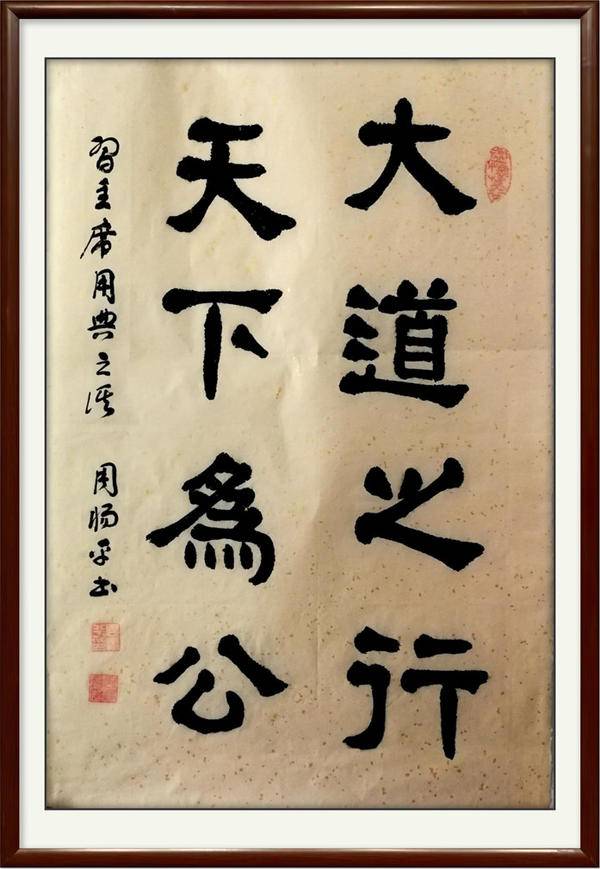 大道之行
天下為公
習主席用典之
周 平书